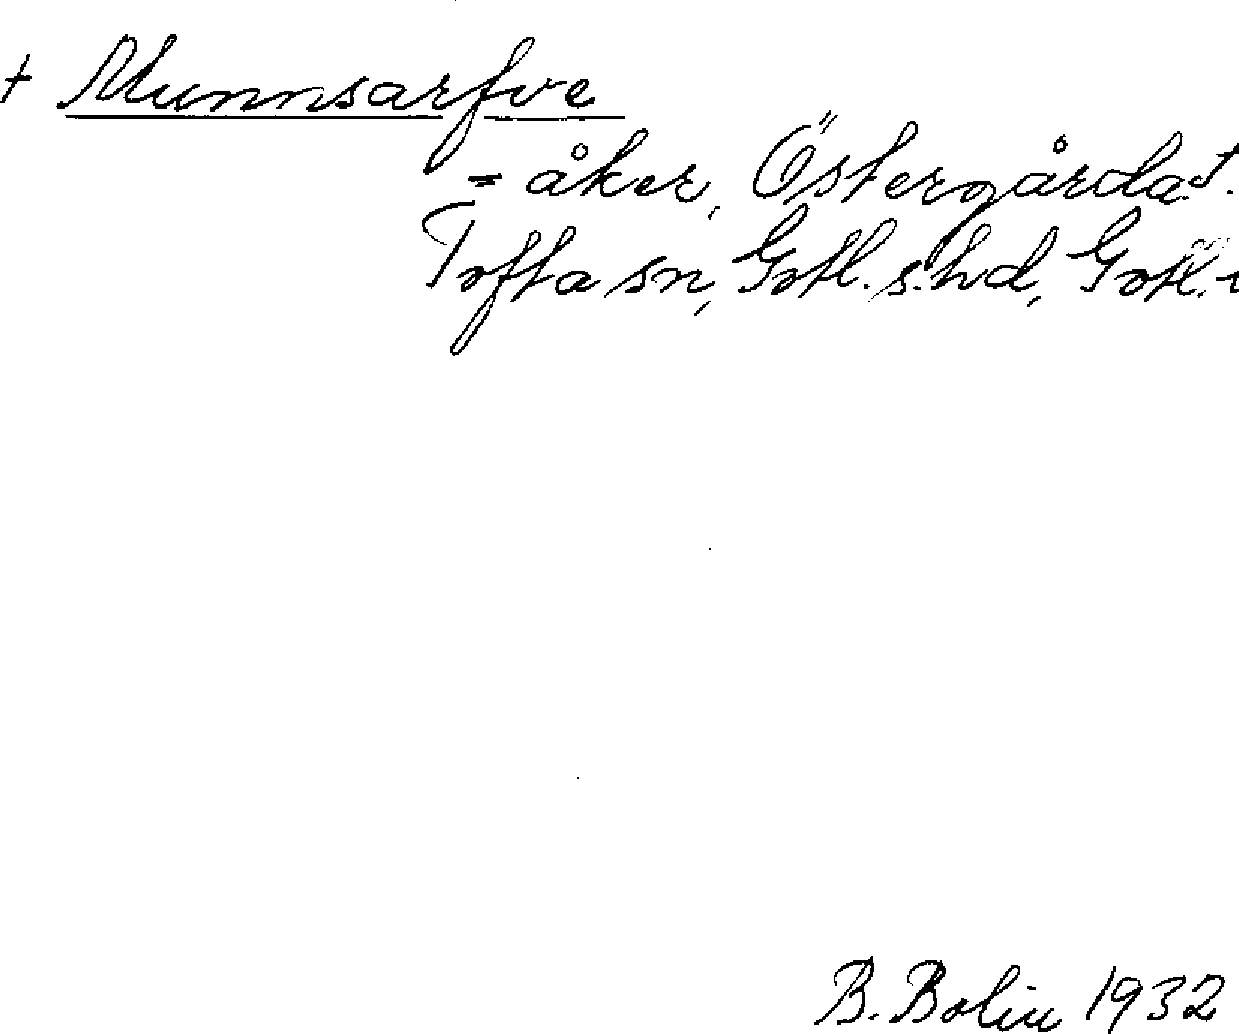 + Munnsarfve
= åker, Östergårda.
Tofta sn, Gotl. s. hd, Gotl.
B. Bolin 1932